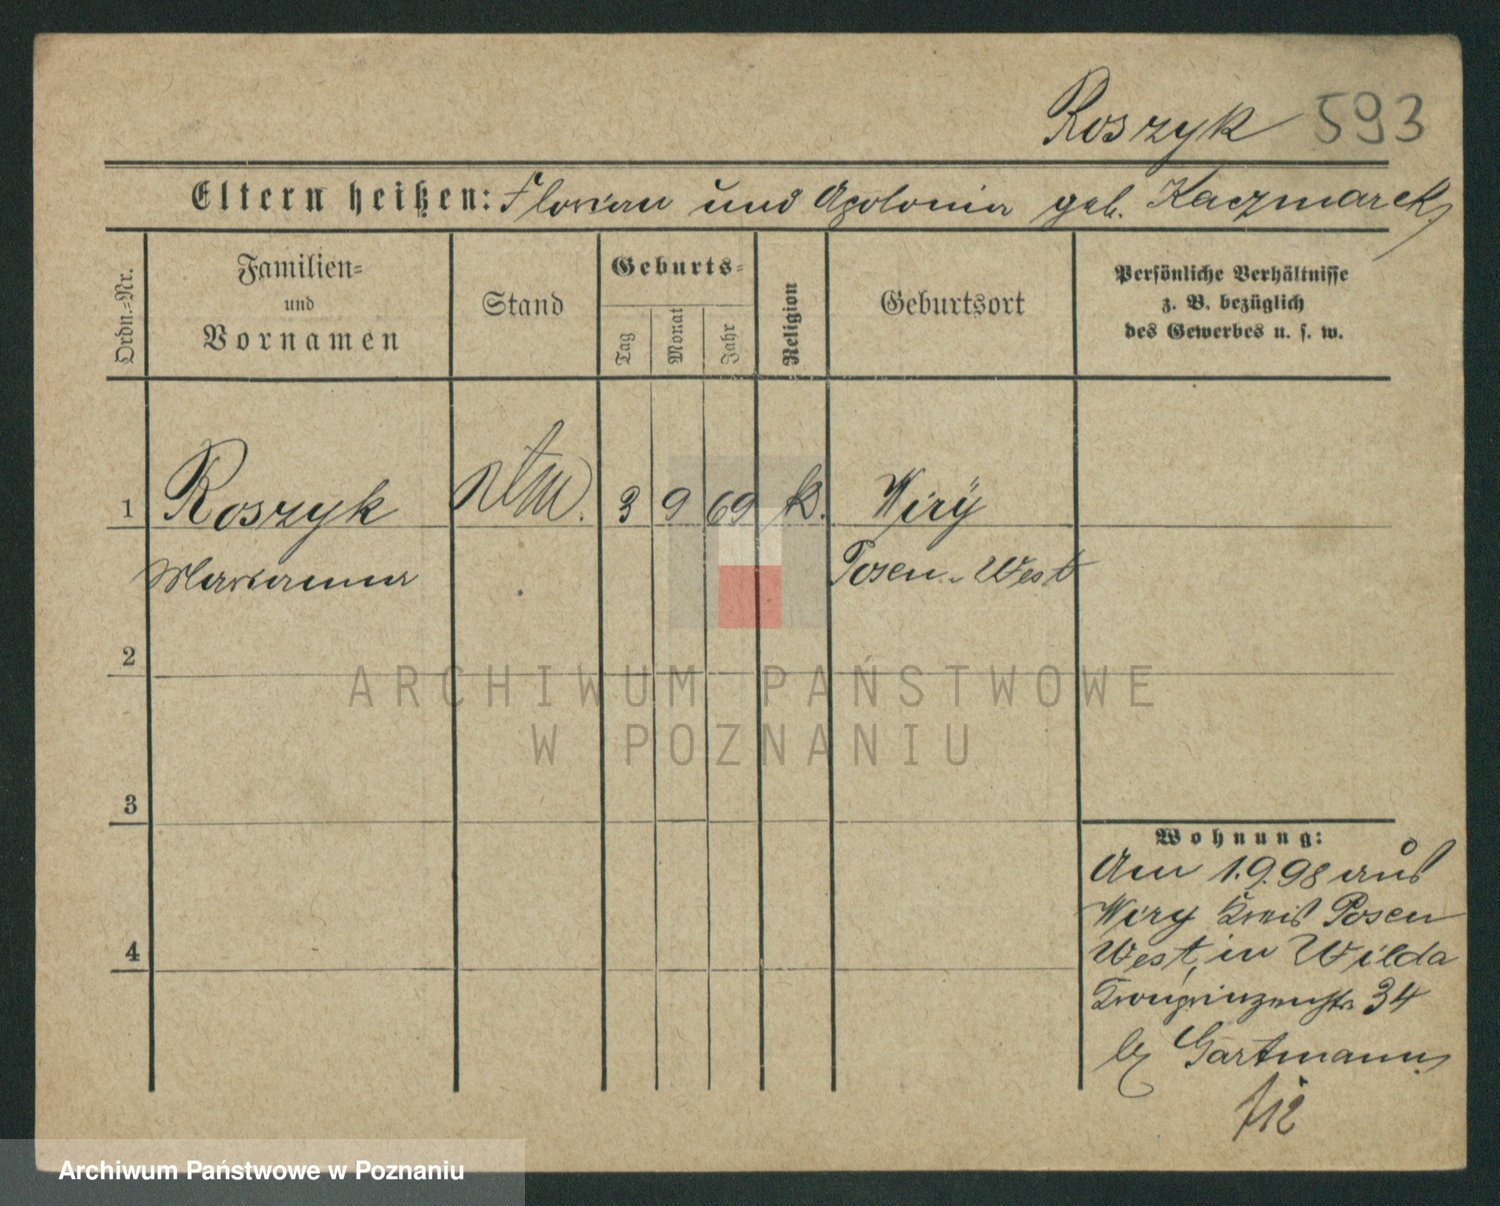 Roszyk 593
Eltern heißen: Florian und Apolonia geb. Kaczmarek
Ordn.-Nr.
Familien-
und
Vornamen
Stand
Geburts-
Tag
Monat
Jahr
Religion
Geburtsort
Persönliche Verhältnisse
z. B. bezüglich
des Gewerbes u. s. w.
1 Roszyk 3 9 69 k. Wiry
Marianna Posen-West
2
ARCHIWUM PAŃSTWOWE
W POZNANIU
3
Wohnung:
Am 1.9.98 aus
Wiry Kreis Posen
4
West, in Wilda
Kronprinzenstr. 34
b/ Gartmann
Archiwum Państwowe w Poznaniu